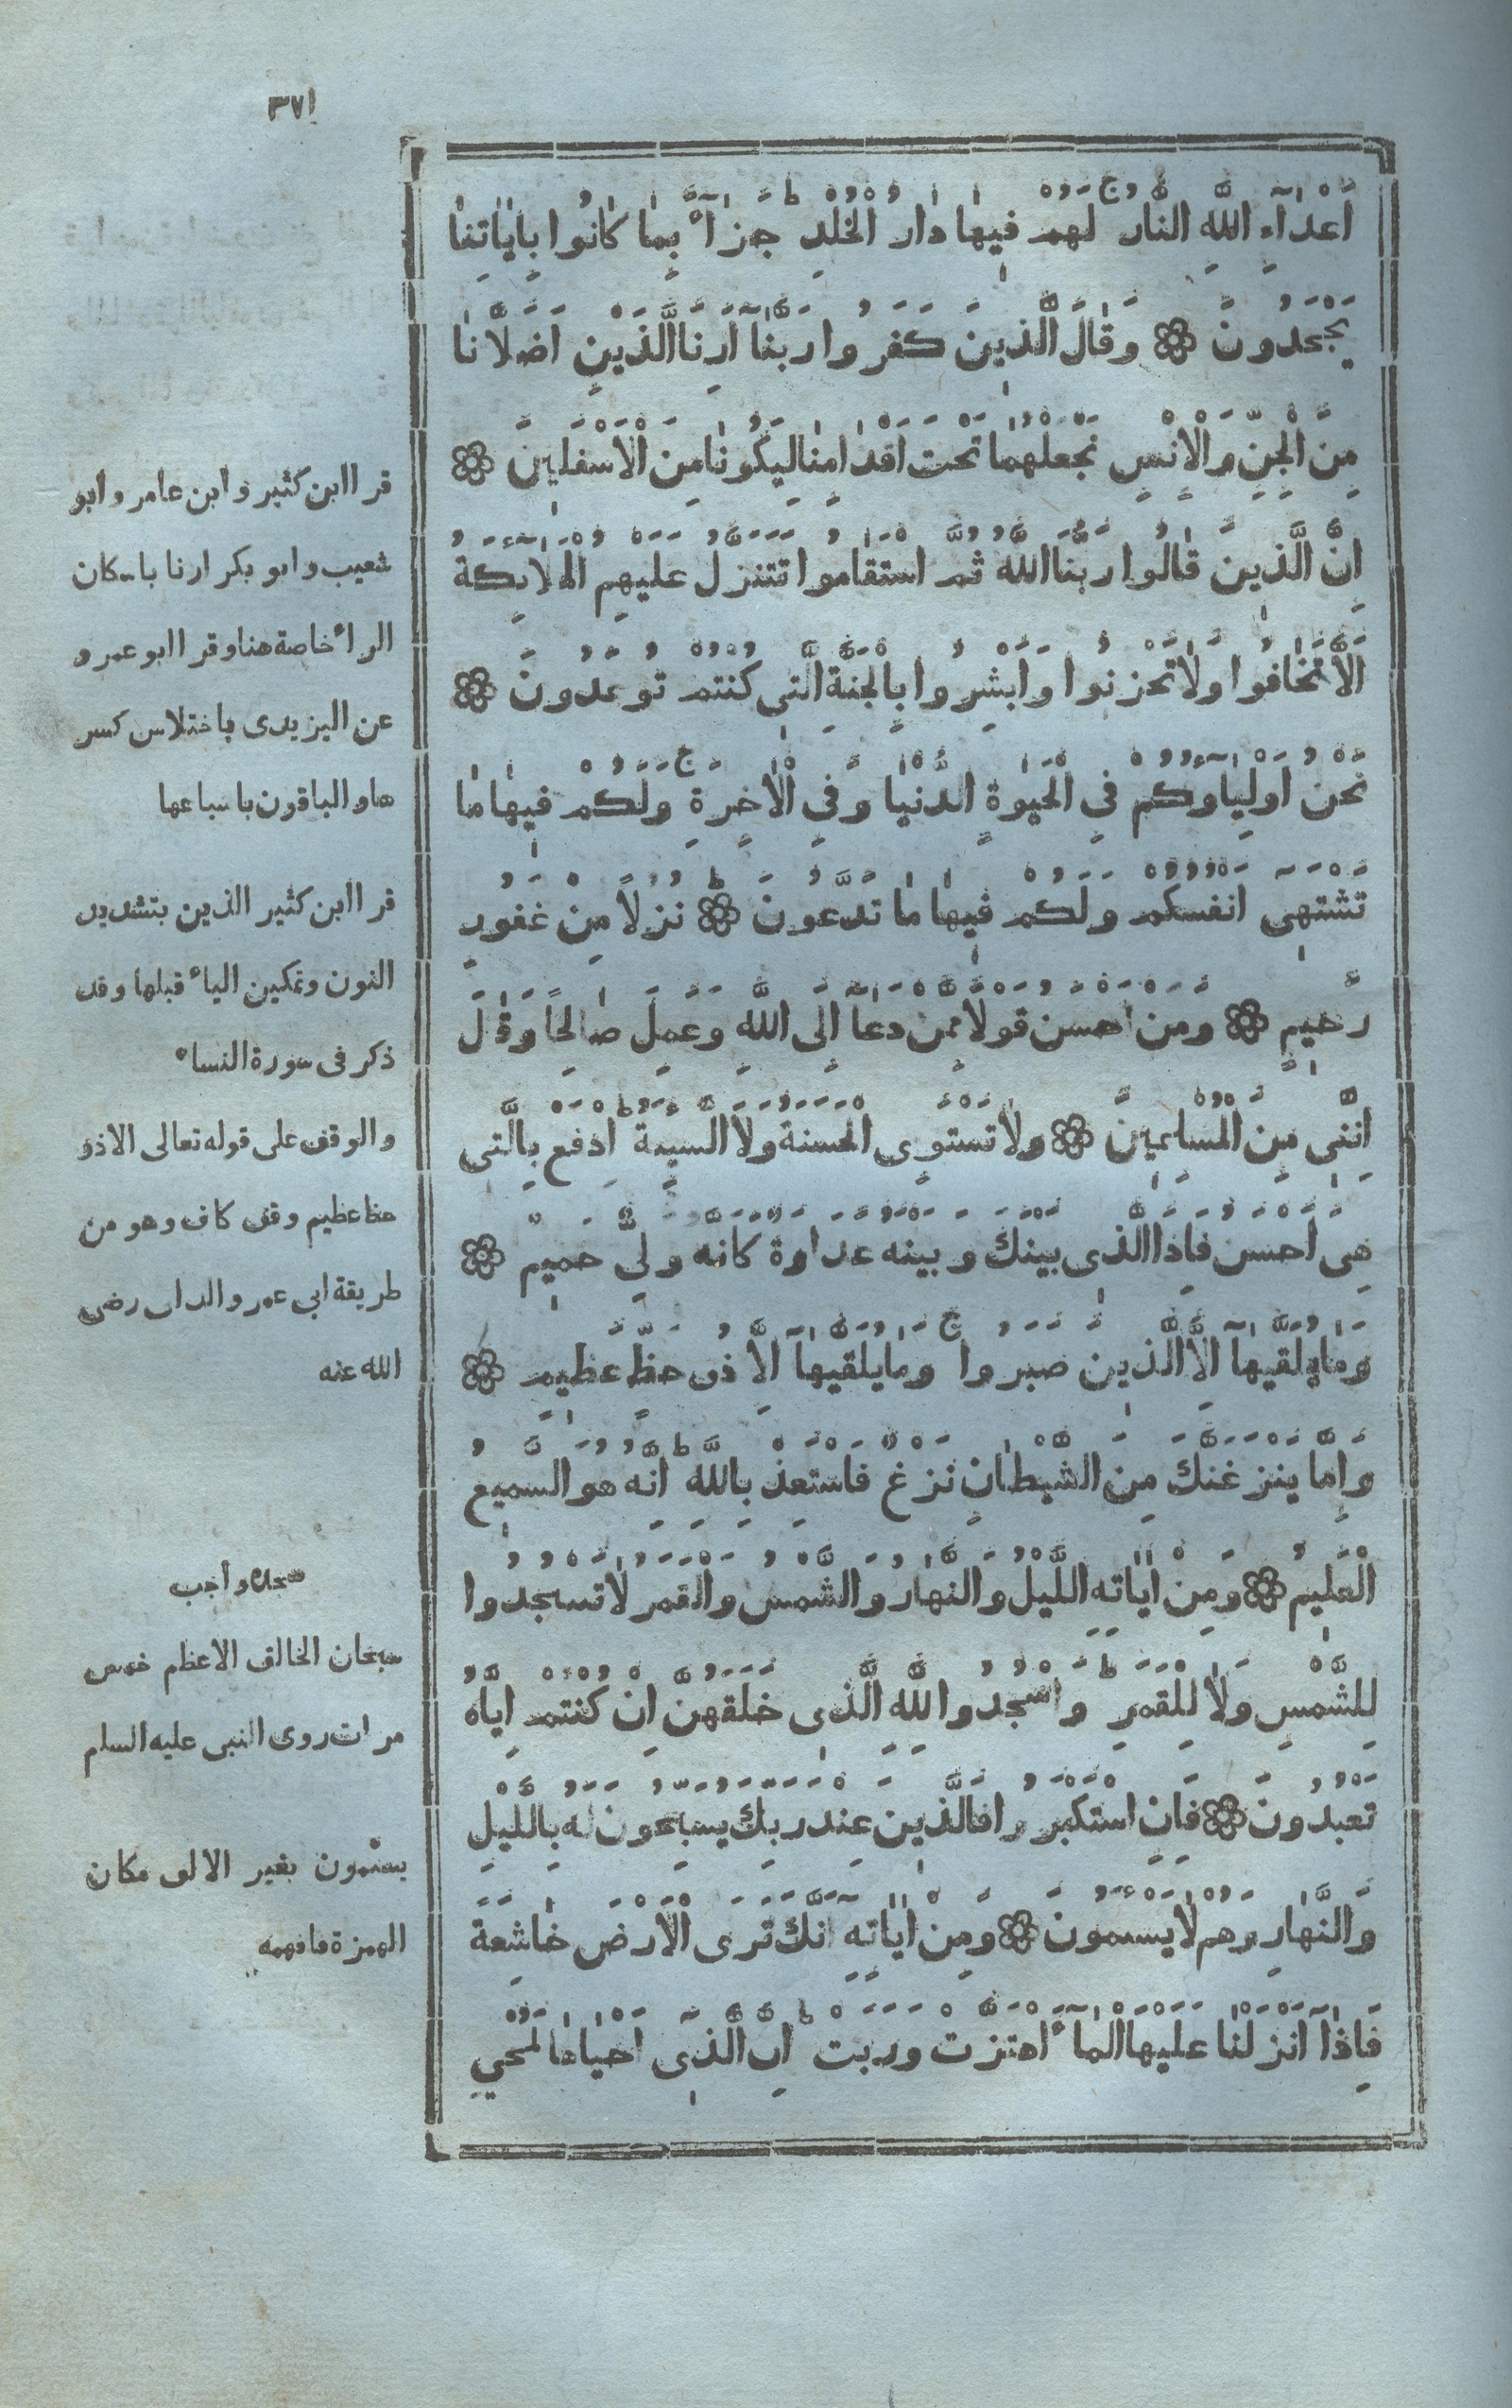 ٣٧١
اَعْدَاۤءِ اللَّهِ النَّارُ ج لَهُمْ فِيهَا دَارُ الْخُلْدِ ط جَزَاۤءً بِمَا كَانُوا بِاٰيَاتِنَا
يَجْحَدُونَ وَقَالَ الَّذِينَ كَفَرُوا رَبَّنَاۤ اَرِنَا الَّذَيْنِ اَضَلَّانَا
مِنَ الْجِنِّ وَالْاِنْسِ نَجْعَلْهُمَا تَحْتَ اَقْدَامِنَا لِيَكُونَا مِنَ الْاَسْفَلِينَ
اِنَّ الَّذِينَ قَالُوا رَبُّنَا اللَّهُ ثُمَّ اسْتَقَامُوا تَتَنَزَّلُ عَلَيْهِمُ الْمَلَاۤئِكَةُ
اَلَّا تَخَافُوا وَلَا تَحْزَنُوا وَاَبْشِرُوا بِالْجَنَّةِ الَّتِي كُنْتُمْ تُوعَدُونَ
نَحْنُ اَوْلِيَاۤؤُكُمْ فِي الْحَيٰوةِ الدُّنْيَا وَفِي الْاٰخِرَةِ ج وَلَكُمْ فِيهَا مَا
تَشْتَهِىۤ اَنْفُسُكُمْ وَلَكُمْ فِيهَا مَا تَدَّعُونَ ط نُزُلًا مِنْ غَفُورٍ
رَحِيمٍ وَمَنْ اَحْسَنُ قَوْلًا مِمَّنْ دَعَاۤ اِلَى اللَّهِ وَعَمِلَ صَالِحًا وَقَالَ
اِنَّنِى مِنَ الْمُسْلِمِينَ وَلَا تَسْتَوِى الْحَسَنَةُ وَلَا السَّيِّئَةُ ط اِدْفَعْ بِالَّتِى
هِىَ اَحْسَنُ فَاِذَا الَّذِى بَيْنَكَ وَبَيْنَهُ عَدَاوَةٌ كَاَنَّهُ وَلِىٌّ حَمِيمٌ
وَمَا يُلَقّٰيهَاۤ اِلَّا الَّذِينَ صَبَرُوا ج وَمَا يُلَقّٰيهَاۤ اِلَّا ذُو حَظٍّ عَظِيمٍ
وَاِمَّا يَنْزَغَنَّكَ مِنَ الشَّيْطَانِ نَزْغٌ فَاسْتَعِذْ بِاللَّهِ ط اِنَّهُ هُوَ السَّمِيعُ
الْعَلِيمُ وَمِنْ اٰيَاتِهِ اللَّيْلُ وَالنَّهَارُ وَالشَّمْسُ وَالْقَمَرُ لَا تَسْجُدُوا
لِلشَّمْسِ وَلَا لِلْقَمَرِ ط وَاسْجُدُوا لِلَّهِ الَّذِى خَلَقَهُنَّ اِنْ كُنْتُمْ اِيَّاهُ
تَعْبُدُونَ فَاِنِ اسْتَكْبَرُوا فَالَّذِينَ عِنْدَ رَبِّكَ يُسَبِّحُونَ لَهُ بِاللَّيْلِ
وَالنَّهَارِ وَهُمْ لَا يَسْئَمُونَ وَمِنْ اٰيَاتِهِۤ اَنَّكَ تَرَى الْاَرْضَ خَاشِعَةً
فَاِذَاۤ اَنْزَلْنَا عَلَيْهَا الْمَاۤءَ اهْتَزَّتْ وَرَبَتْ ط اِنَّ الَّذِىۤ اَحْيَاهَا لَمُحْيِ
قرا ابن كثير و ابن عامر و ابو
شعيب و ابو بكر ارنا باسكان
الراء خاصة هنا وقرا ابو عمرو
عن اليزيدى باختلاس كسر
ها والباقون باسباعها
قرا ابن كثير الذين بتشديد
النون وتمكين الياء قبلها وقد
ذكر فى سورة النساء
والوقف على قوله تعالى الا ذو
حظ عظيم وقف كاف وهو من
طريقة ابى عمرو الدانى رضى
الله عنه
سجدة واجب
سبحان الخالق الاعظم خمس
مرات روى النبى عليه السلم
يسئمون بغير الالى مكان
الهمزة فافهمه